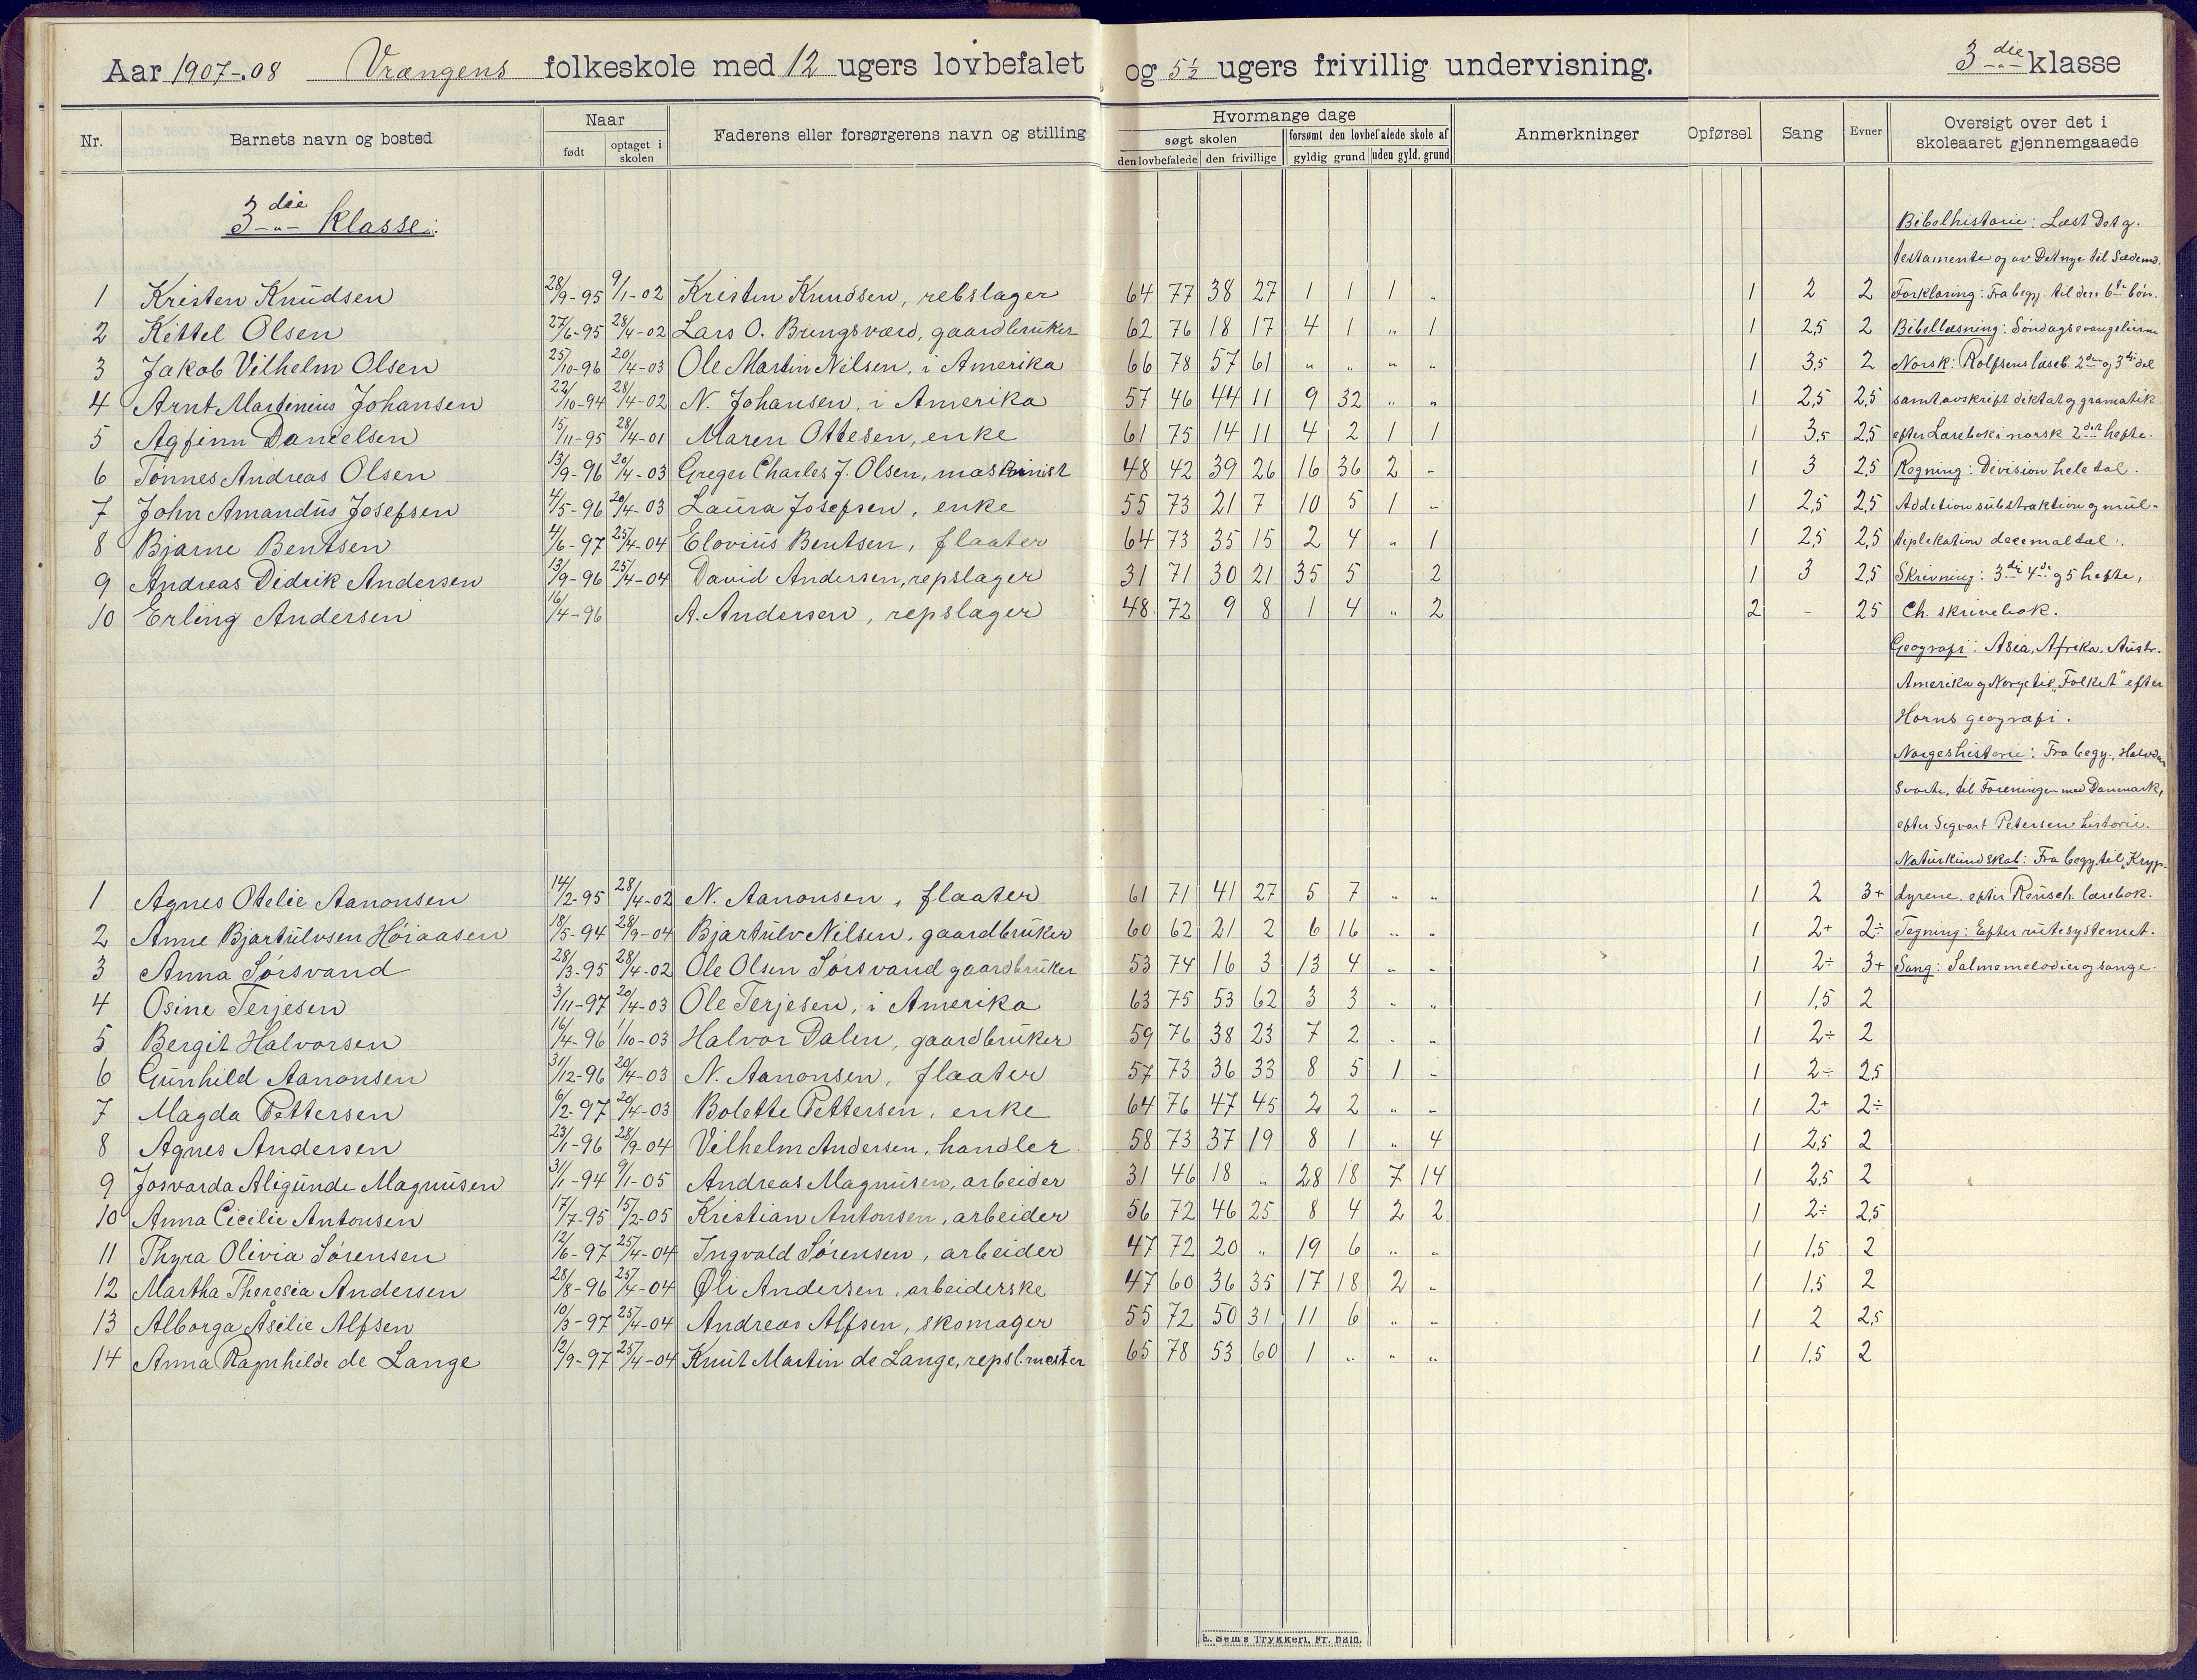 Aar 1907-.08 Vrængens folkeskole med 12 ugers lovbefalet og 5½ ugers frivillig undervisning. 3die klasse
Nr. Barnets navn og bosted Naar født optaget i skolen Faderens eller forsørgerens navn og stilling Hvormange dage søgt skolen den lovbefalede den frivillige forsømt den lovbefalede skole af gyldig grund uden gyld. grund Anmerkninger Opførsel Sang Evner Oversigt over det i skoleaaret gjennemgaaede
3die Klasse:
Bibelhistorie: Læst Det g.
testamente og av Det nye til Sædem.
1 Kristen Knudsen 28/9-95 9/1-02 Kristen Knudsen, rebslager 64 77 38 27 1 1 1 " 1 2 2 Forklaring: Fra begy. til den 6te bøn.
2 Kittel Olsen 27/6-95 28/4-02 Lars O. Bringsværd, gaardbruker 62 76 18 17 4 1 " 1 1 2,5 2 Bibellæsning: Søndagsevangelierne
3 Jakob Vilhelm Olsen 25/10-96 20/4-03 Ole Martin Nilsen, i Amerika 66 78 57 61 " " " " 1 3,5 2 Norsk: Rolfsens læseb. 2den og 3die del
4 Arnt Martinius Johansen 22/10-94 28/4-02 N. Johansen, i Amerika 57 46 44 11 9 32 " " 1 2,5 2,5 samt avskrift diktat og gramatik
5 Agfinn Danielsen 15/11-95 28/4-01 Maren Ottesen, enke 61 75 14 11 4 2 1 1 1 3,5 2,5 efter Lærebok i norsk 2det hefte.
6 Tønnes Andreas Olsen 13/9-96 20/4-03 Greger Charles J. Olsen, maskinist 48 42 39 26 16 36 2 - 1 3 2,5 Regning: Division hele tal.
7 John Amandus Josefsen 4/5-96 20/4-03 Laura Josefsen, enke 55 73 21 7 10 5 1 - 1 2,5 2,5 Addition substraktion og mul-
8 Bjarne Bentsen 4/6-97 25/4-04 Elovius Bentsen, flaater 64 73 35 15 2 4 " 1 1 2,5 2,5 tiplikation decimaltal.
9 Andreas Didrik Andersen 13/9-96 25/4-04 David Andersen, repslager 31 71 30 21 35 5 2 1 3 2,5 Skrivning: 3die 4de og 5 hefte,
10 Erling Andersen 16/4-96 A. Andersen, repslager 48 72 9 8 1 4 " 2 2 - 25 Ch. skrivebok.
Geografi: Asia, Afrika, Austr.
Amerika og Norge til "Folket" efter
Horns geografi.
Norgeshistorie: Fra begy., Halvdan
Svarte, til Foreningen med Danmark,
efter Segvart Petersen historie.
Naturkundskab: Fra begy. til Kryp-
1 Agnes Otelie Aanonsen 14/2-95 28/4-02 N. Aanonsen, flaater 61 71 41 27 5 7 " " 1 2 3+ dyrene, efter Reusch lærebok.
2 Anne Bjartulvsen Høiaasen 18/5-94 28/9-04 Bjartulv Nilsen, gaardbruker 60 62 21 2 6 16 " " 1 2+ 2÷ Tegning: Efter rutesystemet.
3 Anna Sørsvand 28/3-95 28/4-02 Ole Olsen Sørsvand gaardbruker 53 74 16 3 13 4 " " 1 2÷ 3+ Sang: Salmemelodier og sange.
4 Osine Terjesen 3/11-97 20/4-03 Ole Terjesen, i Amerika 63 75 53 62 3 3 " " 1 1,5 2
5 Bergit Halvorsen 16/4-96 1/10-03 Halvor Dalen, gaardbruker 59 76 38 23 7 2 " " 1 2÷ 2
6 Gunhild Aanonsen 31/12-96 20/4-03 N. Aanonsen, flaater 57 73 36 33 8 5 1 - 1 2÷ 2,5
7 Magda Pettersen 6/2-97 20/4-03 Bolette Pettersen, enke 64 76 47 45 2 2 " " 1 2+ 2÷
8 Agnes Andersen 23/1-96 28/9-04 Vilhelm Andersen, handler 58 73 37 19 8 1 " 4 1 2,5 2
9 Josvarda Aligunde Magnusen 31/1-94 9/1-05 Andreas Magnusen, arbeider 31 46 18 " 28 18 7 14 1 2,5 2
10 Anna Cicilie Antonsen 17/7-95 15/2-05 Kristian Antonsen, arbeider 56 72 46 25 8 4 2 2 1 2÷ 2,5
11 Thyra Olivia Sørensen 12/6-97 25/4-04 Ingvald Sørensen, arbeider 47 72 20 " 19 6 " " 1 1,5 2
12 Martha Theresia Andersen 28/8-96 25/4-04 Oli Andersen, arbeiderske 47 60 36 35 17 18 2 " 1 1,5 2
13 Alborga Åsilie Alfsen 10/3-97 25/4-04 Andreas Alfsen, skomager 55 72 50 31 11 6 " " 1 2 2,5
14 Anna Ragnhilde de Lange 12/9-97 25/4-04 Knut Martin de Lange, repsl.mester 65 78 53 60 1 " " " 1 1,5 2
E. Sem's Trykkeri, Fr. hald.